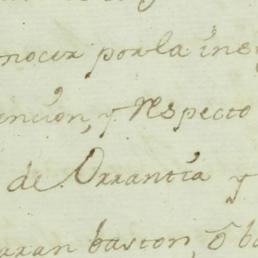 nocer por la ins
encion, y Respecto
de Orrantia y
aran baston, ô ba